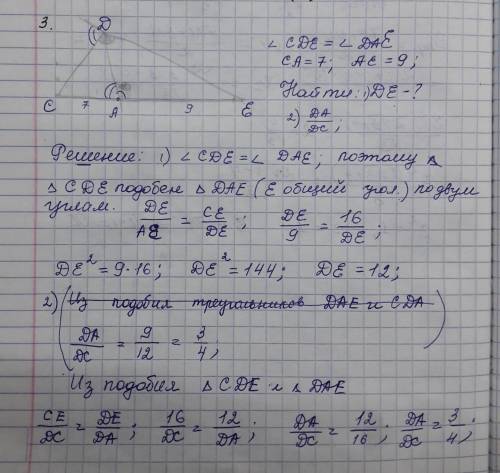 3.
D
C 7 A 9 E
∠CDE = ∠DAE
CA = 7; AE = 9;
Найти: 1) DE - ?
2) DA/DC;
Решение: 1) ∠CDE = ∠DAE; поэтому △
△CDE подобен △DAE (E общий угол) по двум
углам. DE/AE = CE/DE; DE/9 = 16/DE;
DE² = 9·16; DE² = 144; DE = 12;
2) (Из подобия треугольников DAE и CDA
DA/DC = 9/12 = 3/4; )
Из подобия △CDE и △DAE
CE/DC = DE/DA; 16/DC = 12/DA; DA/DC = 12/16; DA/DC = 3/4;